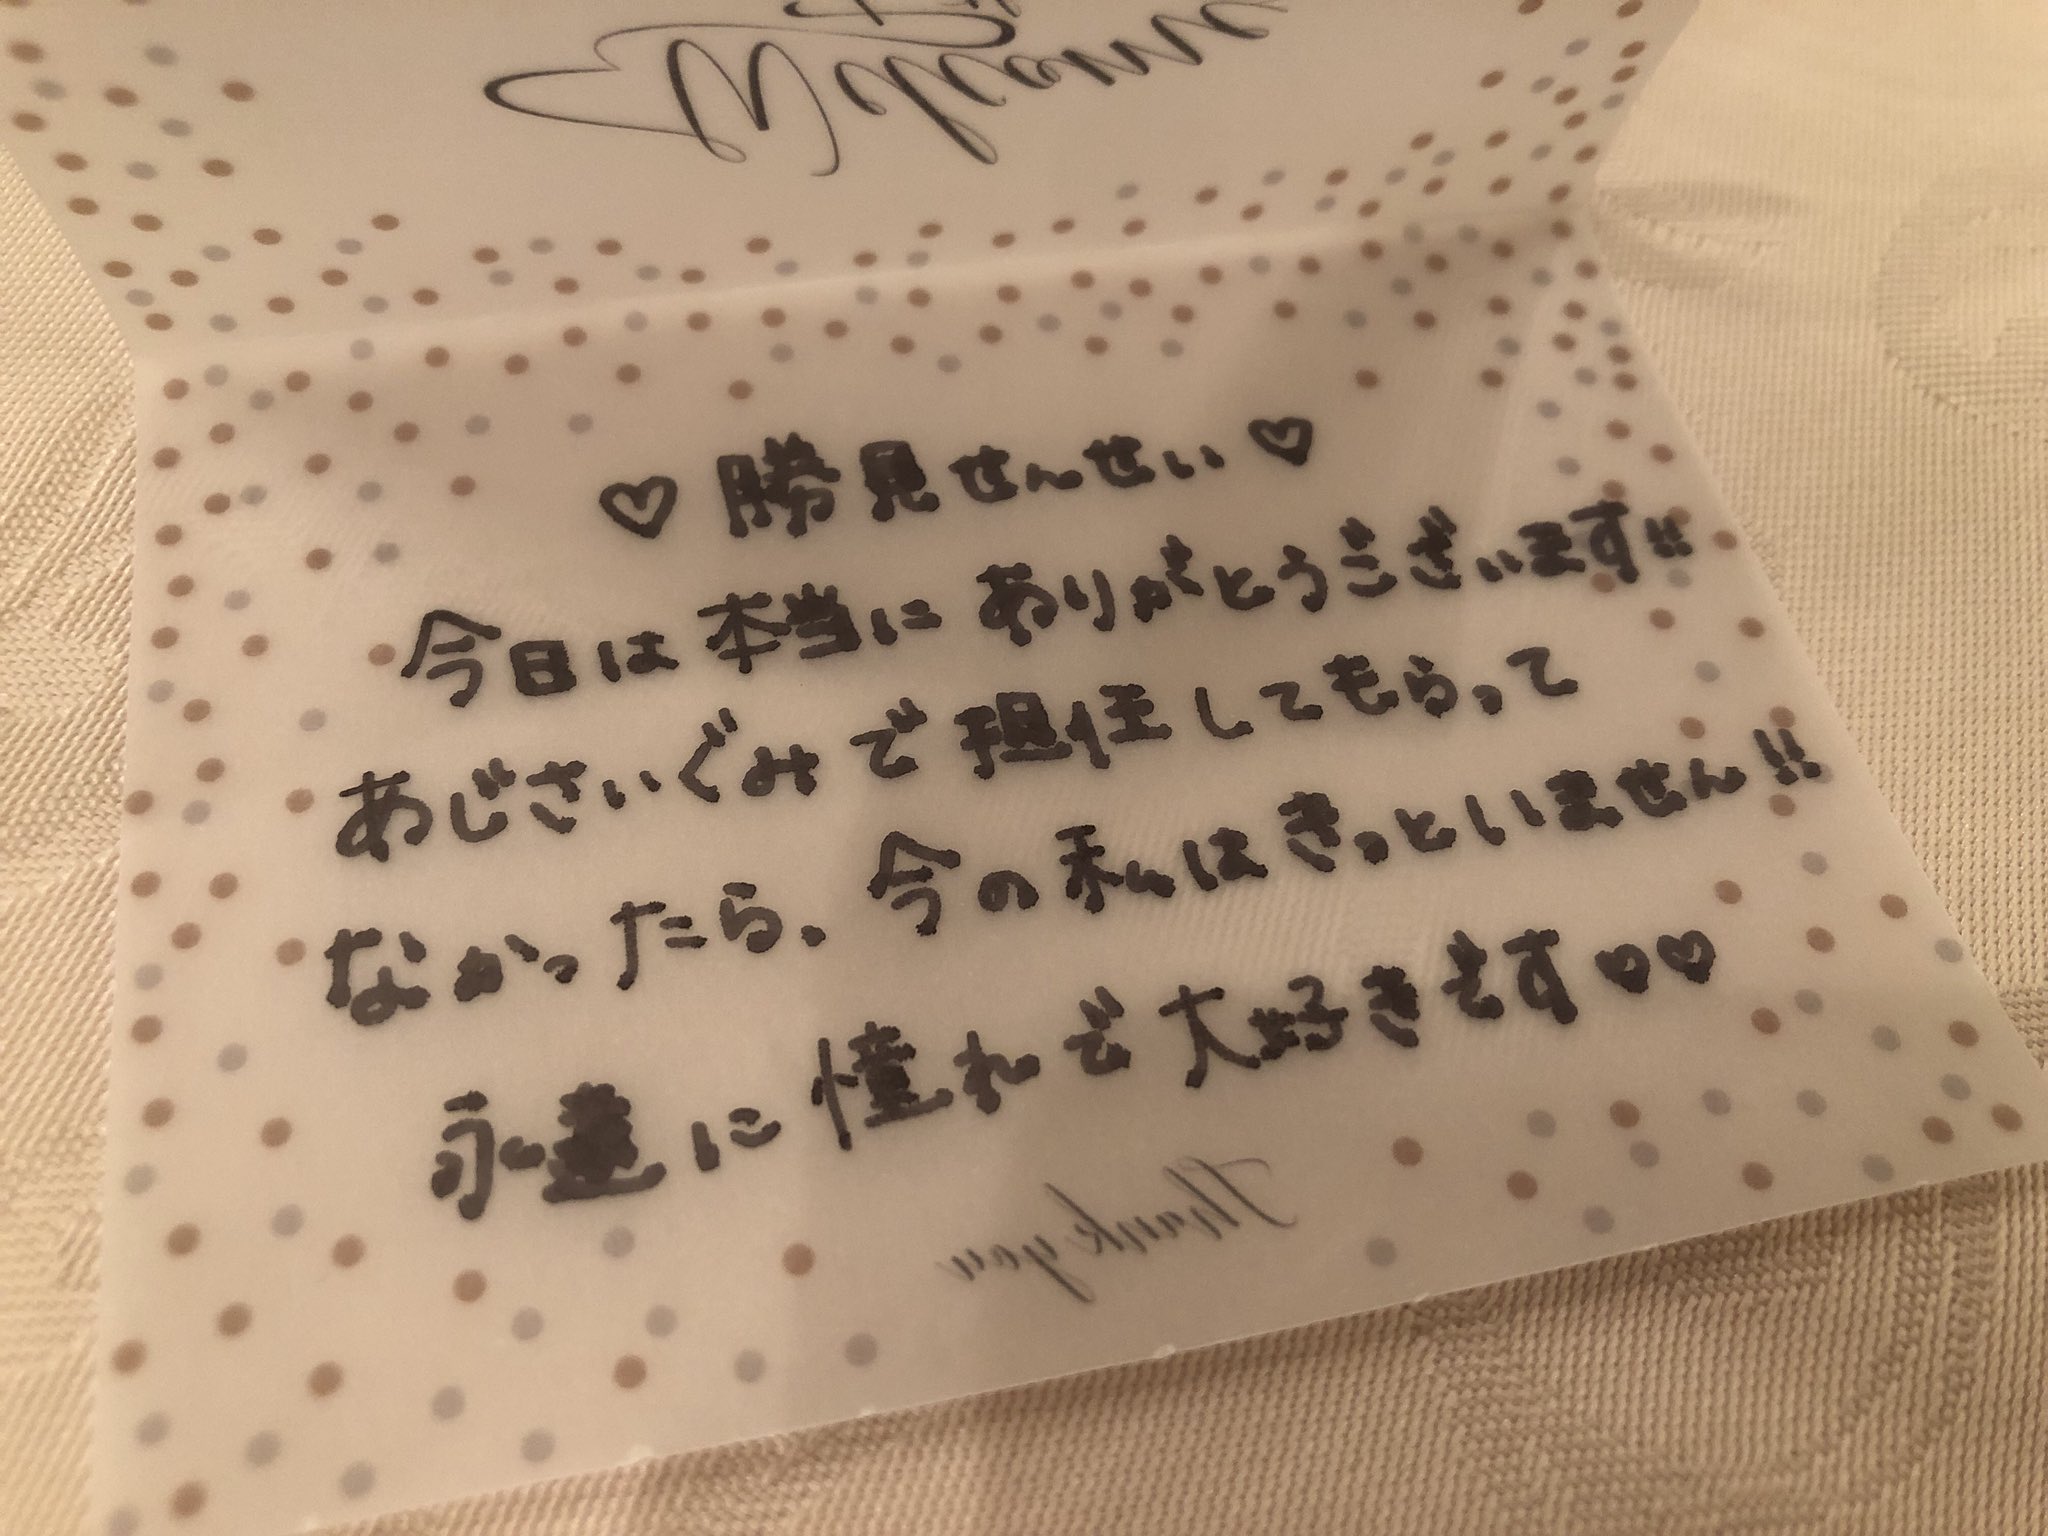 Welcome
♡ 勝見せんせい ♡
今日は本当にありがとうございます!!
あじさいぐみで担任してもらって
なかったら、今の私はきっといません!!
永遠に憧れで大好きです♡♡
Thank you